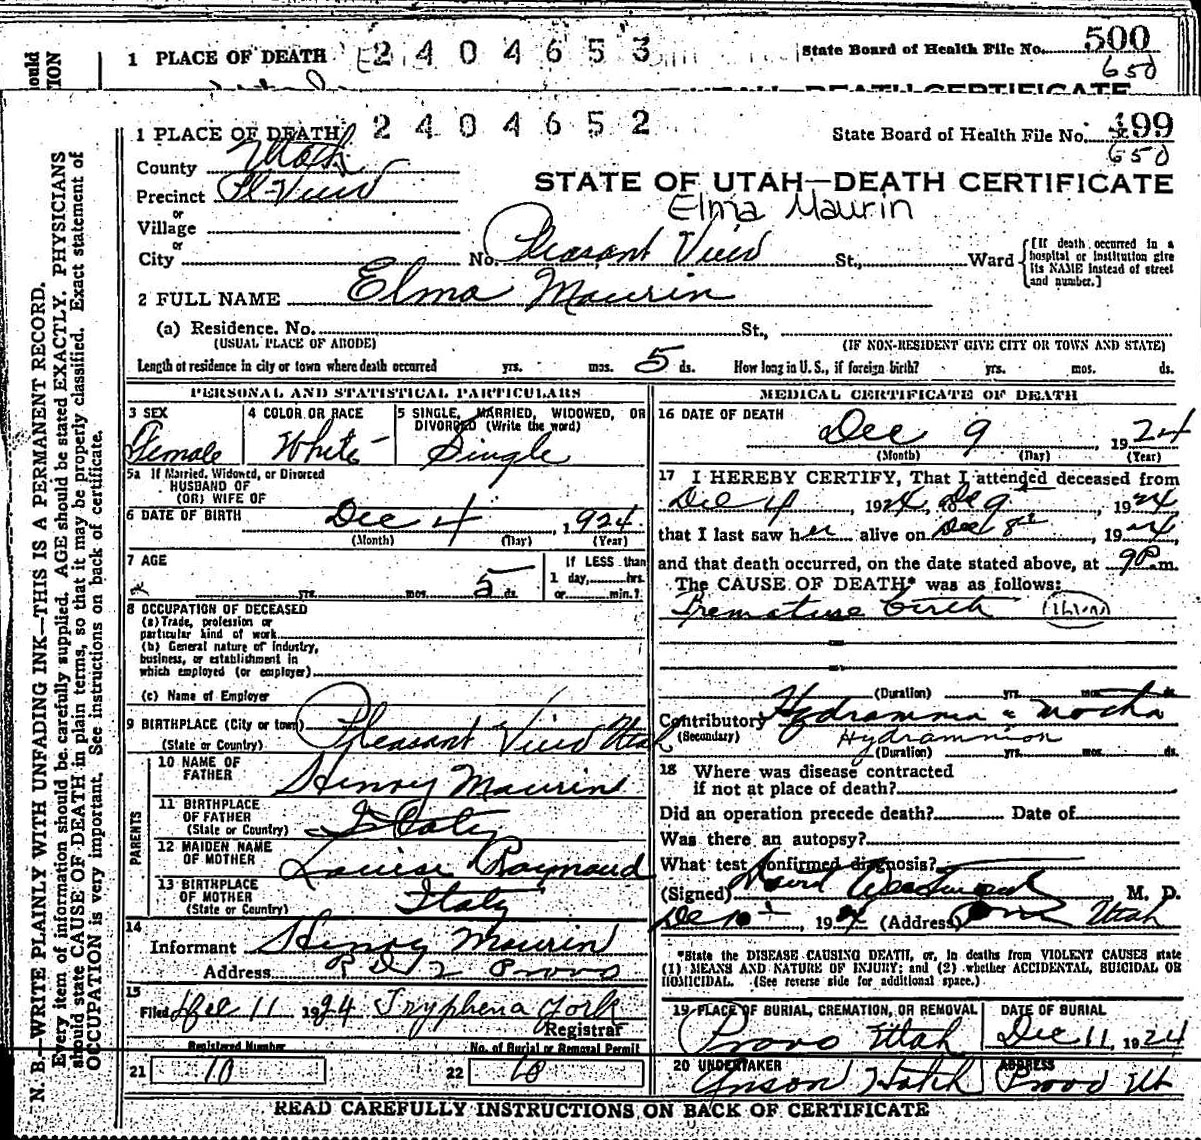 ould
TION
1 PLACE OF DEATH 2404653 State Board of Health File No. 500
650
DEATH CERTIFICATE
N. B.—WRITE PLAINLY WITH UNFADING INK—THIS IS A PERMANENT RECORD.
Every item of information should be carefully supplied. AGE should be stated EXACTLY. PHYSICIANS
should state CAUSE OF DEATH in plain terms, so that it may be properly classified. Exact statement of
OCCUPATION is very important. See instructions on back of certificate.
1 PLACE OF DEATH 2404652 State Board of Health File No. 499
650
County Utah
Precinct Pl-View
STATE OF UTAH—DEATH CERTIFICATE
Elma Maurin
or
Village
or
City No. Pleasant View St., Ward
[If death occurred in a
hospital or institution give
its NAME instead of street
and number.]
2 FULL NAME Elma Maurin
(a) Residence. No. St.,
(USUAL PLACE OF ABODE) (IF NON-RESIDENT GIVE CITY OR TOWN AND STATE)
Length of residence in city or town where death occurred yrs. mos. 5 ds. How long in U. S., if foreign birth? yrs. mos. ds.
PERSONAL AND STATISTICAL PARTICULARS
3 SEX
Female
4 COLOR OR RACE
White
5 SINGLE, MARRIED, WIDOWED, OR
DIVORCED (Write the word)
Single
5a If Married, Widowed, or Divorced
HUSBAND OF
(OR) WIFE OF
6 DATE OF BIRTH Dec 4 1924
(Month) (Day) (Year)
7 AGE
yrs. mos. 5 ds.
If LESS than
1 day, hrs.
or min.?
8 OCCUPATION OF DECEASED
(a) Trade, profession or
particular kind of work
(b) General nature of industry,
business, or establishment in
which employed (or employer)
(c) Name of Employer
9 BIRTHPLACE (City or town) Pleasant View Utah
(State or Country)
PARENTS
10 NAME OF
FATHER Henry Maurin
11 BIRTHPLACE
OF FATHER
(State or Country) Italy
12 MAIDEN NAME
OF MOTHER Louise Raynaud
13 BIRTHPLACE
OF MOTHER
(State or Country) Italy
14
Informant Henry Maurin
Address R D 2 Provo
15
Filed Dec 11 1924 Tryphena York
Registrar
Registered Number
21 10
No. of Burial or Removal Permit
22 10
MEDICAL CERTIFICATE OF DEATH
16 DATE OF DEATH
Dec 9, 1924
(Month) (Day) (Year)
17 I HEREBY CERTIFY, That I attended deceased from
Dec 4, 1924, to Dec 9, 1924
that I last saw her alive on Dec 8, 1924,
and that death occurred, on the date stated above, at 9P.m.
The CAUSE OF DEATH* was as follows:
Premature birth
(Duration) yrs. mos. ds.
Contributory
(Secondary) Hydramnion
(Duration) yrs. mos. ds.
18 Where was disease contracted
if not at place of death?
Did an operation precede death? Date of
Was there an autopsy?
What test confirmed diagnosis?
(Signed) David Westwood M. D.
Dec 10, 1924 (Address) Provo Utah
*State the DISEASE CAUSING DEATH, or, in deaths from VIOLENT CAUSES state
(1) MEANS AND NATURE OF INJURY; and (2) whether ACCIDENTAL, SUICIDAL OR
HOMICIDAL. (See reverse side for additional space.)
19 PLACE OF BURIAL, CREMATION, OR REMOVAL
Provo Utah
DATE OF BURIAL
Dec 11, 1924
20 UNDERTAKER
Anson Hatch
ADDRESS
Provo Ut
READ CAREFULLY INSTRUCTIONS ON BACK OF CERTIFICATE